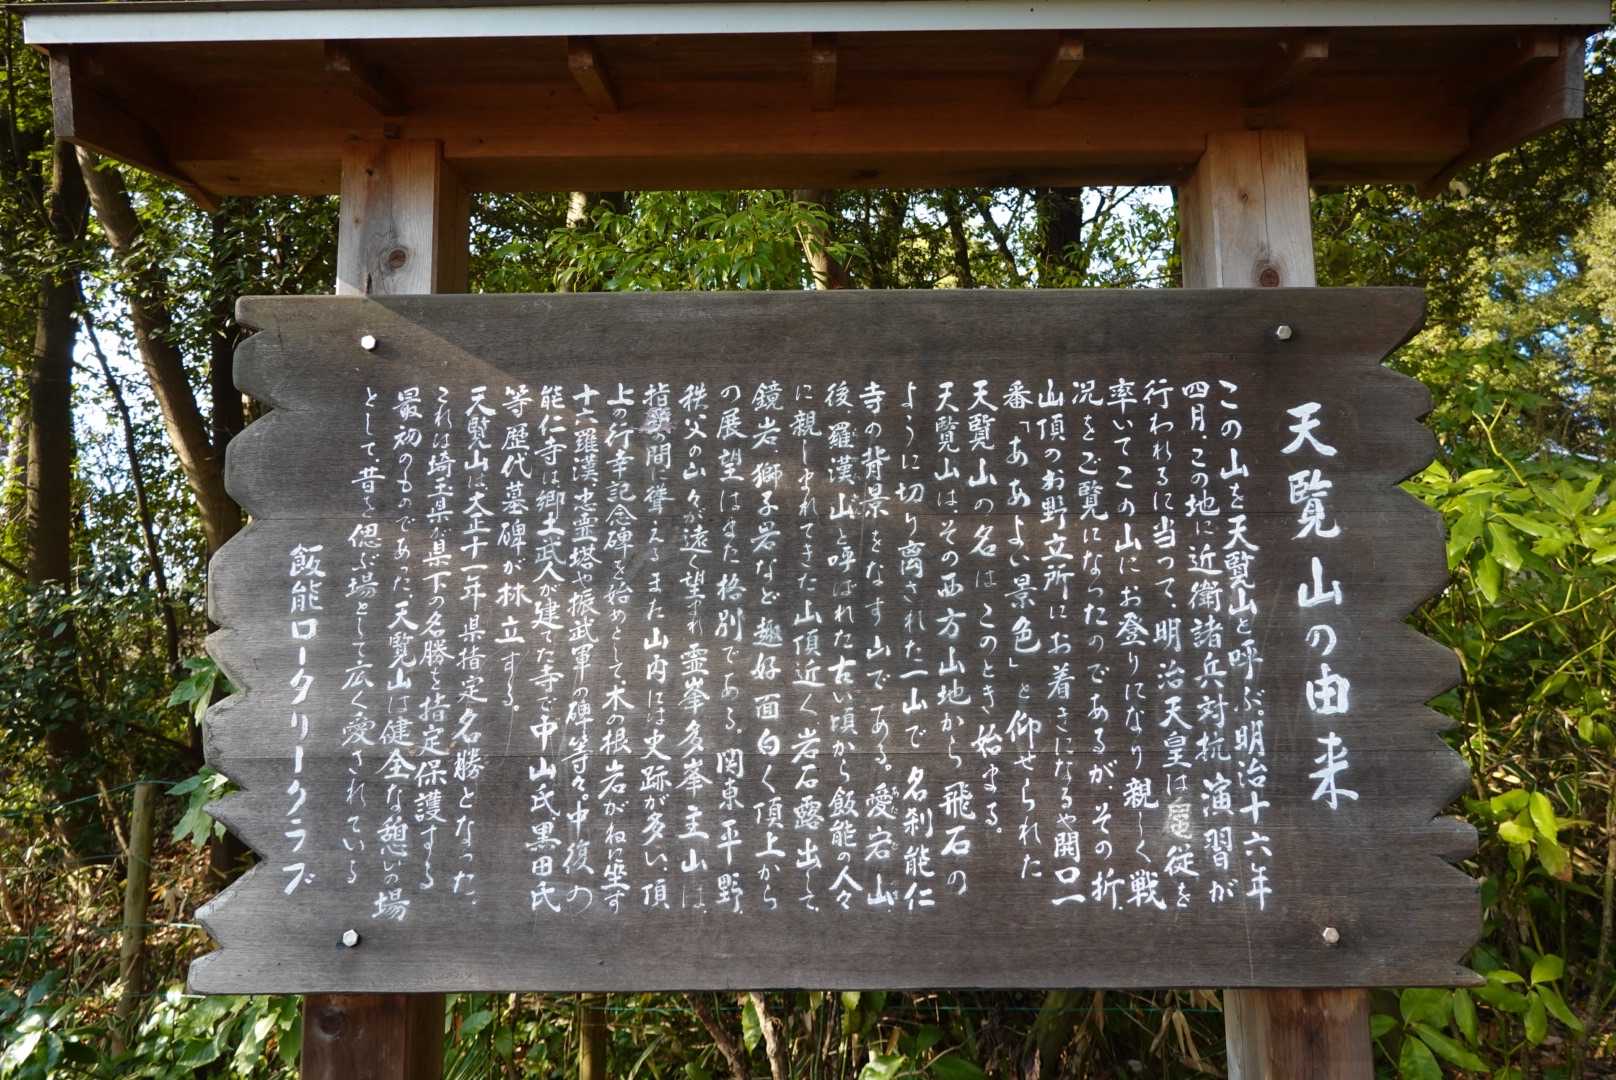 天覧山の由来
この山を天覧山と呼ぶ。明治十六年
四月、この地に近衛諸兵対抗演習が
行われるに当って、明治天皇は扈従を
率いてこの山にお登りになり親しく戦
況をご覧になったのであるが、その折、
山頂のお野立所にお着きになるや開口一
番「ああよい景色」と仰せられた
天覧山の名はこのとき始まる。
天覧山は、その西方山地から飛石の
ように切り離された一山で名刹能仁
寺の背景をなす山である。愛宕山、
後、羅漢山と呼ばれた古い頃から飯能の人々
に親しまれてきた山頂近く、岩石露出して、
鏡岩、獅子岩など趣好面白く頂上から
の展望はまた格別である。関東平野、
秩父の山々が遠く望まれ霊峯多峯主山は、
指の間に聳えるまた山内には史跡が多い、頂
上の行幸記念碑を始めとして、木の根岩がねに坐す
十六羅漢、忠霊塔や振武軍の碑、等々、中復の
能仁寺は郷土武人が建てた寺で中山氏黒田氏
等歴代墓碑が林立する。
天覧山は大正十一年県指定名勝となった、
これは埼玉県が県下の名勝を指定保護する
最初のものであった、天覧山は健全な憩いの場
として、昔を偲ぶ場として広く愛されている
飯能ロータリークラブ